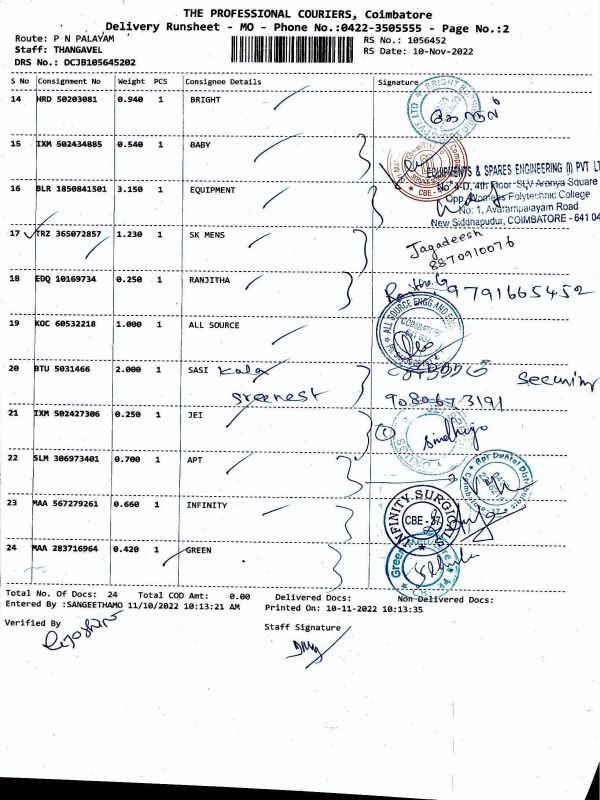 THE PROFESSIONAL COURIERS, Coimbatore
Delivery Runsheet - MO - Phone No.:0422-3505555 - Page No.:2
Route: P N PALAYAM RS No.: 1056452
Staff: THANGAVEL RS Date: 10-Nov-2022
DRS No.: DCJB105645202
S No Consignment No Weight PCS Consignee Details Signature
14 HRD 50203081 0.940 1 BRIGHT
15 IXM 502434885 0.540 1 BABY
EQUIPMENTS & SPARES ENGINEERING (I) PVT LT
16 BLR 1850841501 3.150 1 EQUIPMENT No 4-D, 4th Floor, SLV Aranya Square
Opp. Womens Polytechnic College
No: 1, Avarampalayam Road
New Siddhapudur, COIMBATORE - 641 04
17 TRZ 365072857 1.230 1 SK MENS Jagadeesh
8870910076
18 EDQ 10169734 0.250 1 RANJITHA 9791665452
19 KOC 60532218 1.000 1 ALL SOURCE ALL SOURCE ENGG AND
20 BTU 5031466 2.000 1 SASI Kala
sreenest 9080673191
21 IXM 502427306 0.250 1 JEI 1 Sindhuja
22 SLM 306973401 0.700 1 APT Apt Dental Distributors
23 MAA 567279261 0.660 1 INFINITY INFINITY SURGICALS CBE - 37
24 MAA 283716964 0.420 1 GREEN Green
Total No. Of Docs: 24 Total COD Amt: 0.00 Delivered Docs: Non Delivered Docs:
Entered By :SANGEETHAMO 11/10/2022 10:13:21 AM Printed On: 10-11-2022 10:13:35
Verified By Staff Signature